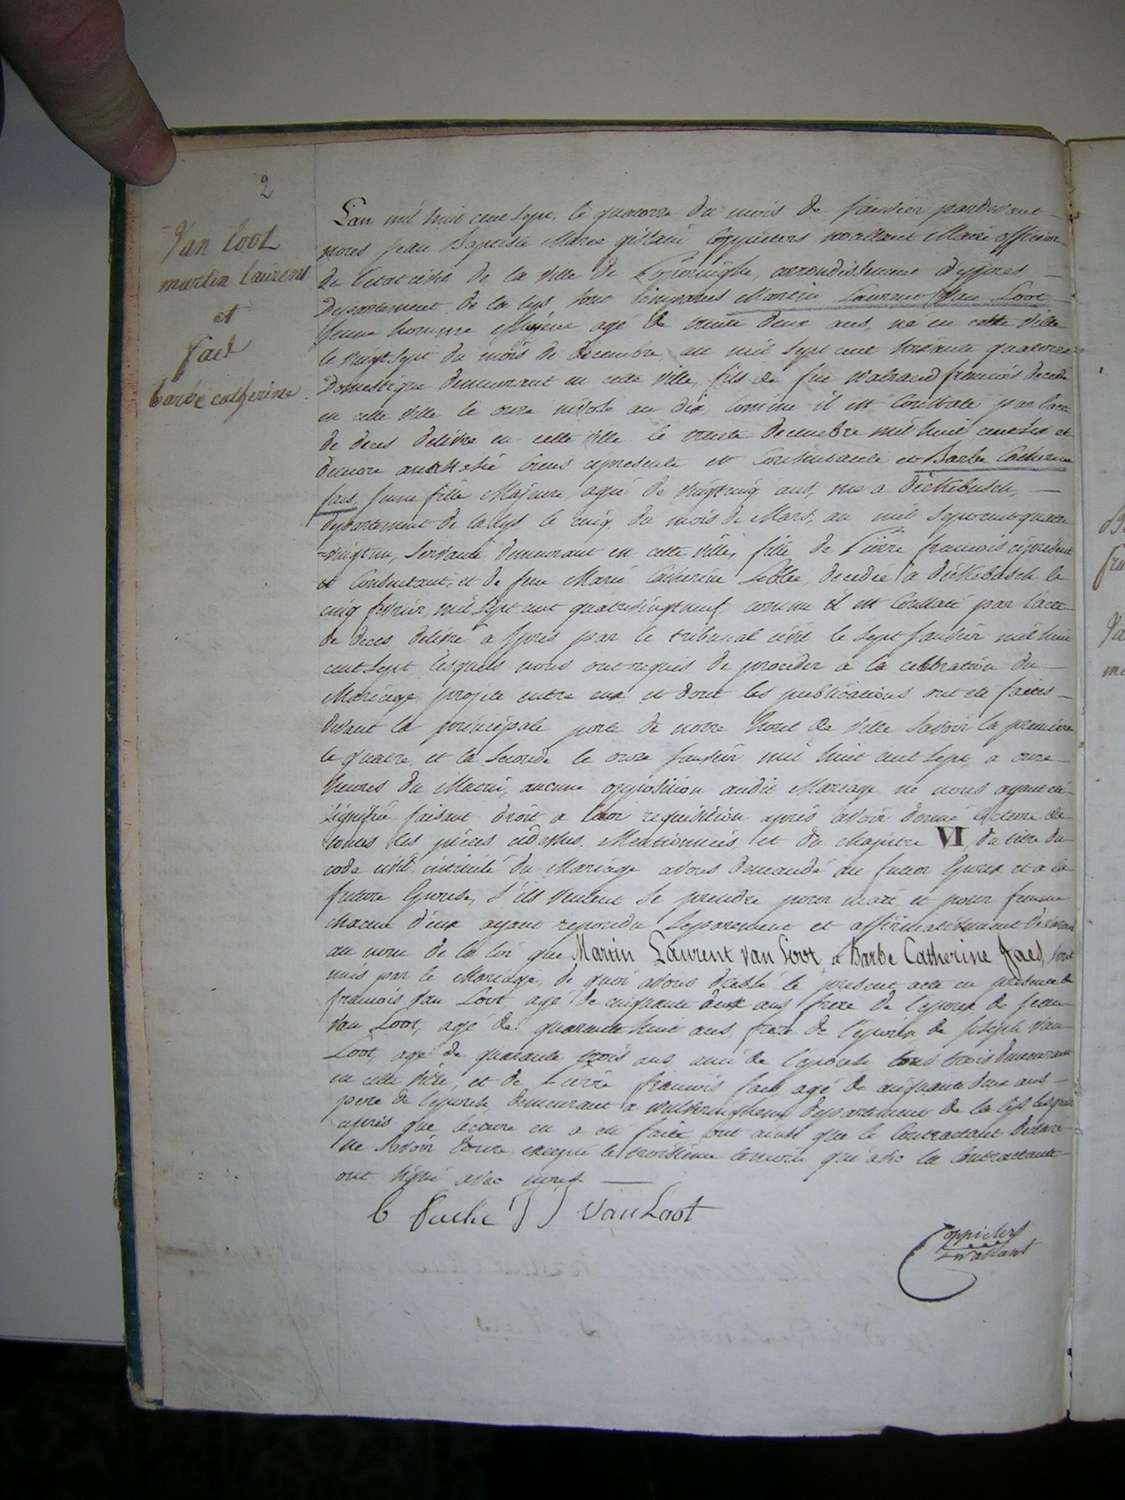 2
Van Loot
martin laurens
et
faes
barbe catherine
L'an mil huit cent sept, le quatorze du mois de janvier pardevant
nous Jean Baptiste Marie gislain Coppieters wallant Maire officier
de l'état civil de la ville de Poperinghe, arrondissement d'ypres
Departement de la Lys sont comparus Martin Laurent Van Loot
jeune homme Majeur agé de trente deux ans, né en cette ville
le vingt sept du mois de decembre an mil sept cent soixante quatorze
Domestique demeurant en cette ville, fils de feu francois decedé
en cette ville le onze nivose an dix comme il est constaté par l'acte
de deces delivré en cette ville le trente decembre mil huit cent six et
et consentante et Barbe Catherine
faes, jeune fille Majeure, agée de vingt cinq ans, née a dickebusch,
departement de la Lys le cinq du mois de Mars, an mil sept cent quatre
vingt un, servante demeurant en cette ville, fille de Pierre francois cipresent
et consentant, et de feue Marie Catherine decedée a dickebusch le
cinq fevrier mil sept cent quatrevingt neuf comme il est constaté par l'acte
de deces delivré a ypres par le tribunal civil le sept janvier mil huit
cent sept lesquels nous ont requis de proceder a la celebration du
Mariage projeté entre eux et dont les publications ont été faites
devant la principale porte de notre hotel de ville savoir la premiere
le quatre, et la seconde le onze janvier mil huit cent sept a onze
heures du Matin, aucune opposition audit Mariage ne nous ayant été
signifiée faisant droit a leur requisition après avoir donné lecture de
toutes les pièces cidessus Mentionnées et du chapitre VI du titre du
code civil intitulé du Mariage avons demandé au futur Epoux et a la
future Epouse, s'ils veulent se prendre pour mari et pour femme
chacun d'eux ayant repondu separement et affirmativement declarons
au nom de la loi que Martin Laurent Van Loot et Barbe Catherine Faes sont
unis par le Mariage, de quoi avons dressé le present acte en presence de
francois Van Loot agé de cinquante deux ans frere de l'epoux de Jean
Van Loot, agé de quarante huit ans, frere de l'epoux de Joseph Van
Loot, agé de quarante trois ans, ami de l'epouse tous trois demeurant
en cette ville, et de Pierre francois faes agé de cinquante deux ans
pere de l'epouse, demeurant a departement de la Lys lesquels
après que lecture en a été faite ont ainsi que le Contractant declaré
ne savoir ecrire excepté le troisième temoin qui avec la Contractante
ont signé avec nous
b J J Van Loot
Coppieters
wallant